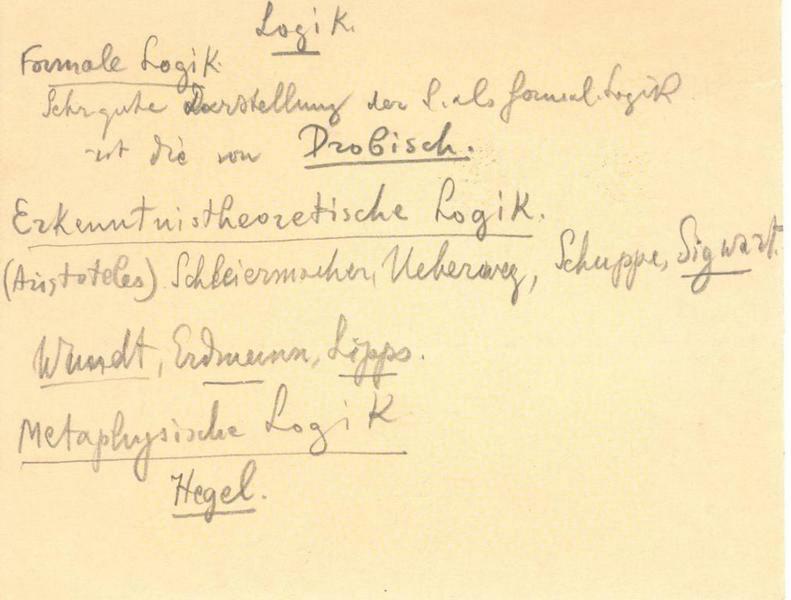 Logik.
Formale Logik.
Sehr gute Darstellung der L. als formal. Logik
ist die von Drobisch.
Erkenntnistheoretische Logik.
(Aristoteles) Schleiermacher, Ueberweg, Schuppe, Sigwart.
Wundt, Erdmann, Lipps.
Metaphysische Logik
Hegel.